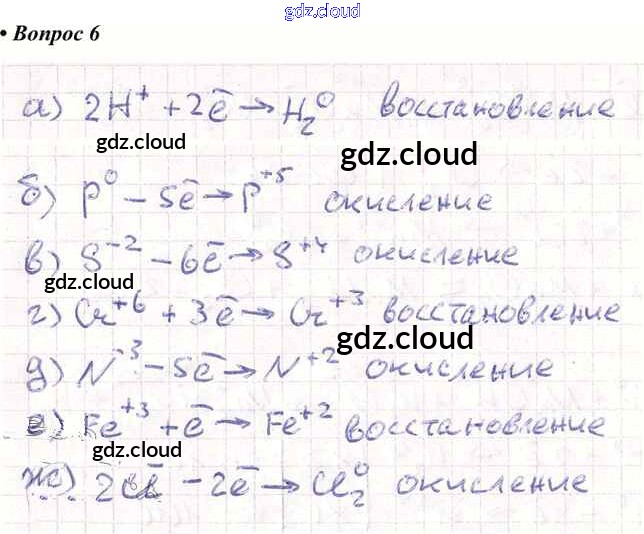 gdz.cloud
• Вопрос 6
а) 2H⁺ + 2ē → H₂⁰ восстановление
gdz.cloud
gdz.cloud
б) P⁰ − 5ē → P⁺⁵ окисление
в) S⁻² − 6ē → S⁺⁴ окисление
gdz.cloud
г) Cr⁺⁶ + 3ē → Cr⁺³ восстановление
gdz.cloud
д) N⁻³ − 5ē → N⁺² окисление
е) Fe⁺³ + ē → Fe⁺² восстановление
gdz.cloud
ж) 2Cl⁻ − 2ē → Cl₂⁰ окисление
gdz.cloud